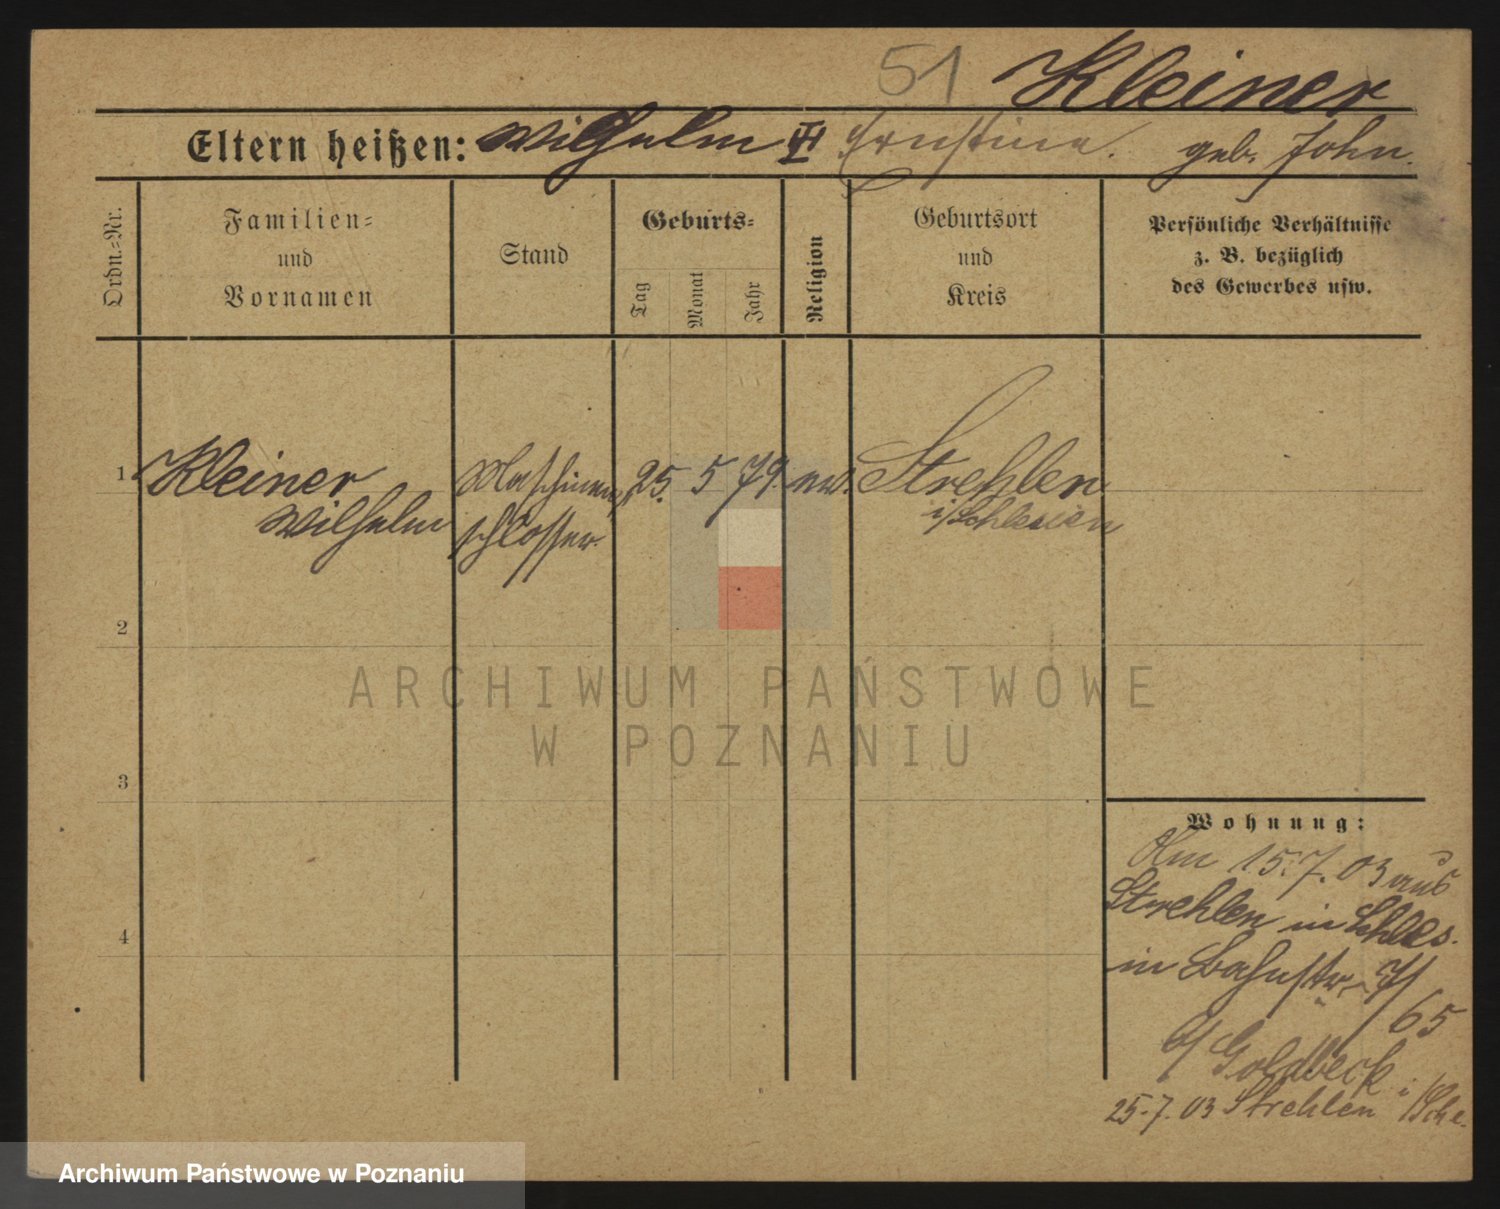 51 Kleiner
Eltern heißen: Wilhelm Ernstine. geb. John.
Ordn.=Nr.
Familien=
und
Vornamen
Stand
Geburts=
Tag
Monat
Jahr
Religion
Geburtsort
und
Kreis
Persönliche Verhältnisse
z. B. bezüglich
des Gewerbes usw.
1 Kleiner Maschinen 25. 5 79. ev. Strehlen
Wilhelm schlosser. i/Schlesien
2
ARCHIWUM PAŃSTWOWE
W POZNANIU
3
Wohnung:
Am 15.7.03 aus
Strehlen in Schles.
4
in Bahnstr. 7/
65
b/ Goldbeck
25.7.03 Strehlen i/Schl.
Archiwum Państwowe w Poznaniu